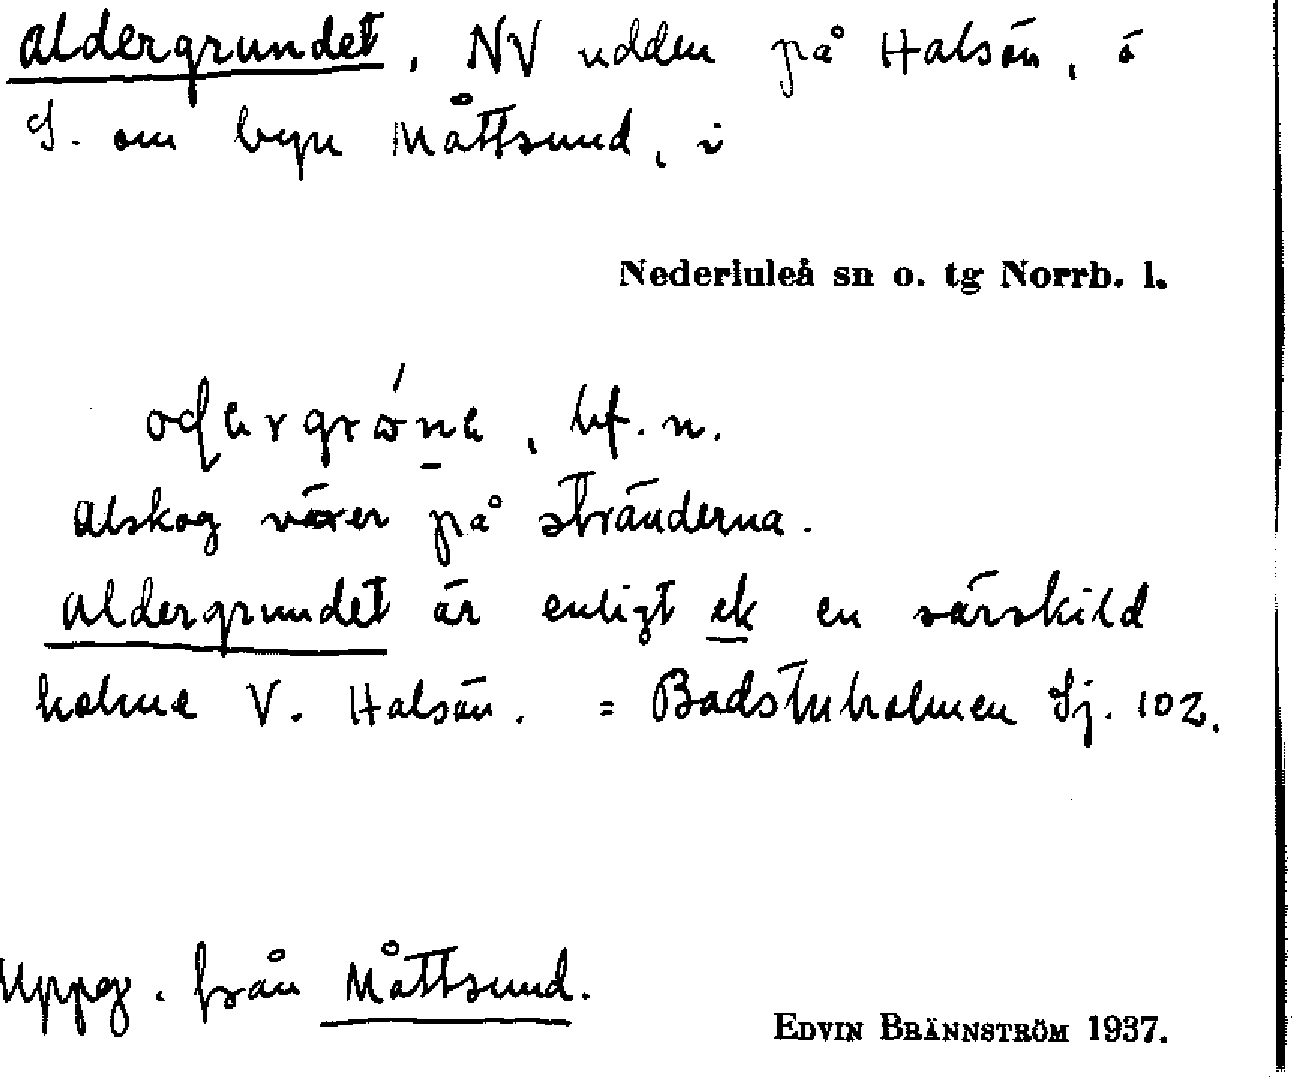 Aldergrundet, NV udden på Halsön, ö
S. om byn Måttsund, i
Nederluleå sn o. tg Norrb. l.
bf. n.
Alskog växer på stränderna.
Aldergrundet är enligt ek en särskild
holme V. Halsön. = Badstuholmen Sj. 102.
Uppg. från Måttsund.
EDVIN BRÄNNSTRÖM 1937.